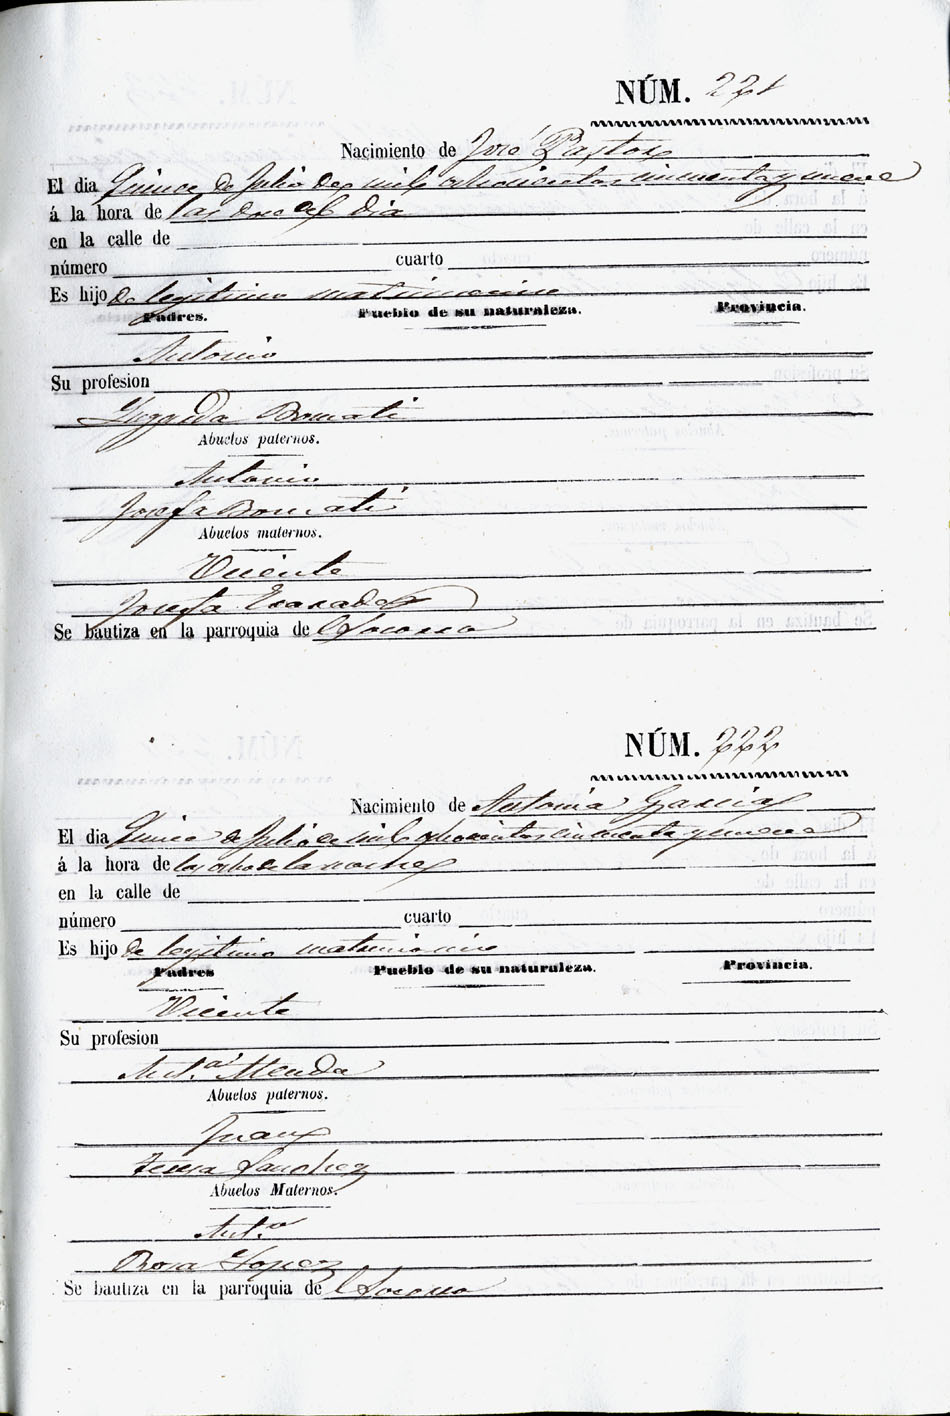 NÚM. 221
Nacimiento de José Pastor
El dia Quince de Julio de mil ochocientos cincuenta y nueve
á la hora de las doce del dia
en la calle de
número cuarto
Es hijo de legitimo matrimonio
Padres. Pueblo de su naturaleza. Provincia.
Antonio
Su profesion
Bernati
Abuelos paternos.
Antonio
Josefa Bernati
Abuelos maternos.
Vicente
Josefa
Se bautiza en la parroquia de Socorro
NÚM. 222
Nacimiento de Antonia Garcia
El dia Quince de Julio de mil ochocientos cincuenta y nueve
á la hora de las ocho de la noche
en la calle de
número cuarto
Es hijo de legitimo matrimonio
Padres Pueblo de su naturaleza. Provincia.
Vicente
Su profesion
Ant.a
Abuelos paternos.
Juan
Teresa Sanchez
Abuelos Maternos.
Ant.o
Rosa Lopez
Se bautiza en la parroquia de Socorro